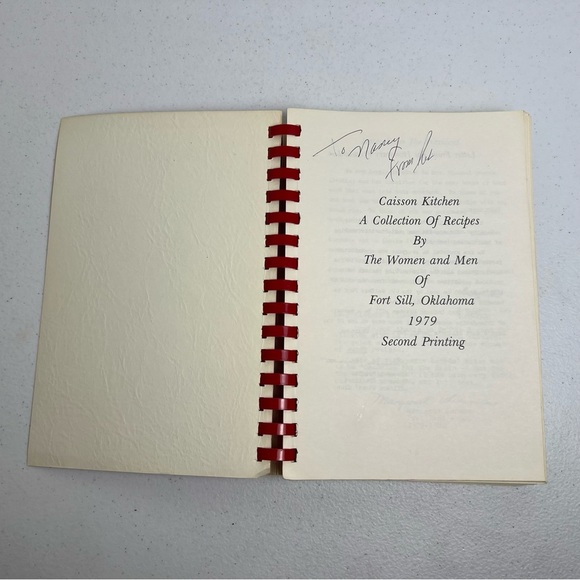 To Nancy
from
Caisson Kitchen
A Collection Of Recipes
By
The Women and Men
Of
Fort Sill, Oklahoma
1979
Second Printing